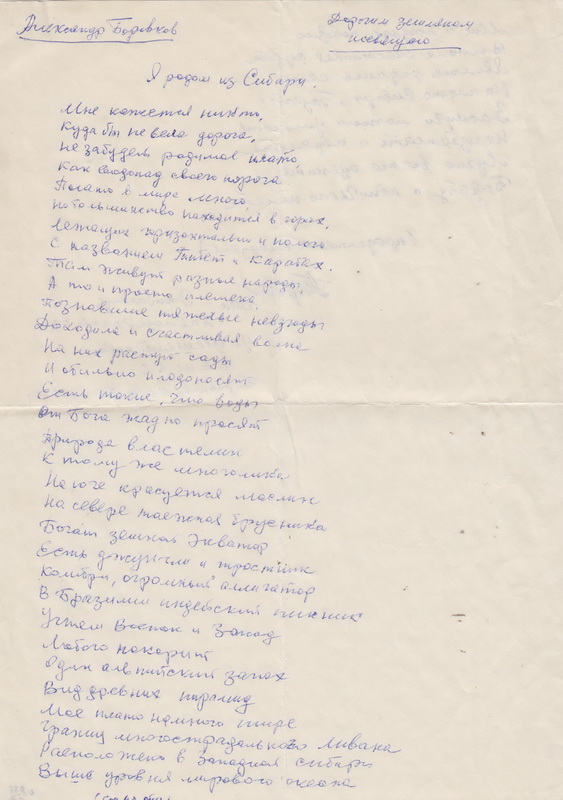 Александр Боровков
Дорогим землякам
посвящаю
Я родом из Сибири.
Мне кажется никто,
Куда бы не вела дорога,
Не забудет родимое плато,
Как свой порога
Плато в мире много
Но большинство находится в горах,
Лежащие горизонтально и полого
С названием Тибет и Карабах.
Там живут разные народы,
А то и просто племена
Познавшие тяжелые невзгоды
Доходила и счастливая волна
На них растут сады
И обильно плодоносят
Есть такие, что воды
От Бога жадно просят
Природа властелин
К тому же многолика
На юге красуется маслин
На севере таежная брусника
Богат земной Экватор
Есть джунгли и тростник
Колибри, огромный аллигатор
В Бразилии индейский
Учтем Восток и Запад
Любого покорит
Один альпийский запах
Вид древних пирамид
Мое плато немного шире
Границ многострадального Ливана
Расположено в Западной Сибири
Выше уровня мирового океана